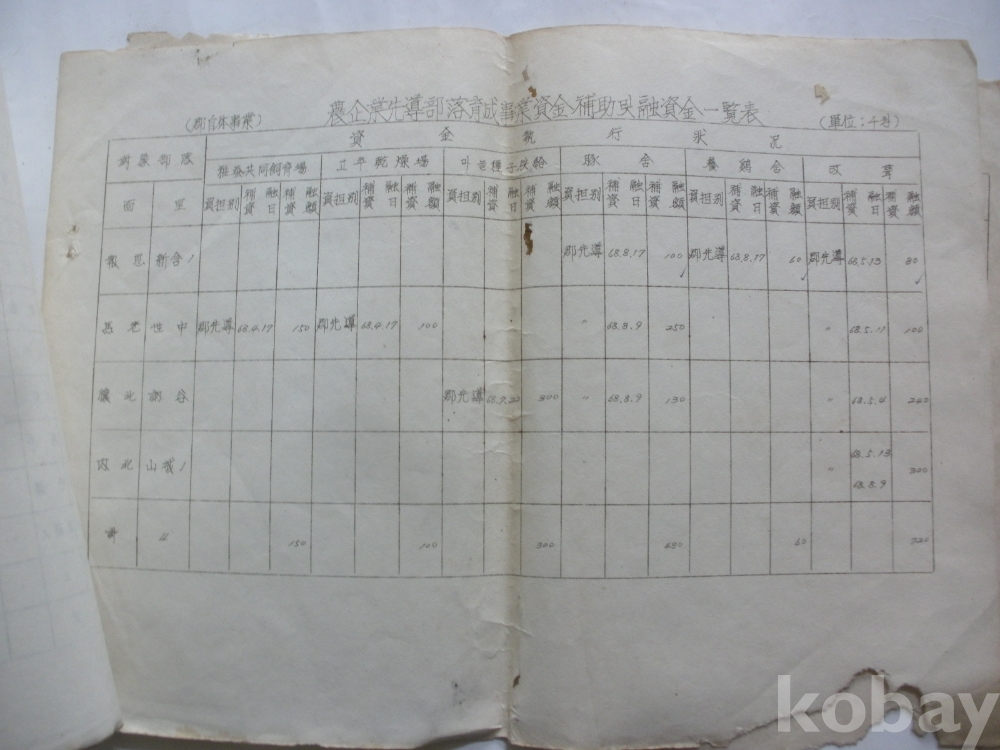 農企業先導部落育成事業資金補助및融資金一覧表
(郡自体事業) (單位:千원)
資金執行状況
對象部落 稚蚕共同飼育場 고추乾燥場 마늘種子供給 豚舎 養鷄舎 改葺
面 里 負担別 補融資日 補融資額 負担別 補融資日 補融資額 負担別 補融資日 補融資額 負担別 補融資日 補融資額 負担別 補融資日 補融資額 負担別 補融資日 補融資額
報恩 新含1 郡先導 68.8.17 100 郡先導 68.8.17 60 郡先導 68.5.13 80
性中 郡先導 68.4.17 150 郡先導 68.4.17 100 〃 68.8.9 250 〃 68.5.11 100
北 谷 郡先導 68.9.20 300 〃 68.8.9 130 〃 68.5.4 240
内北 山城1 〃 68.5.13 300
68.8.9
計 4 150 100 300 480 60 720
kobay